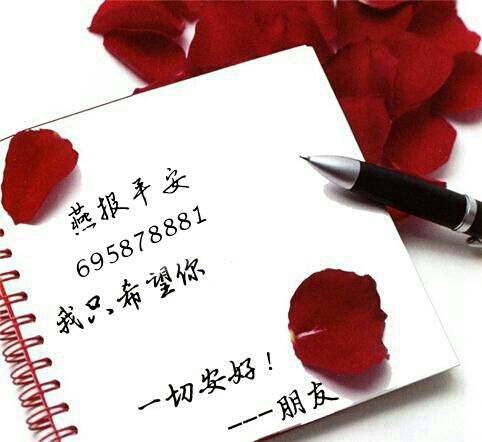 燕报平安
695878881
我只希望你
一切安好！
---朋友